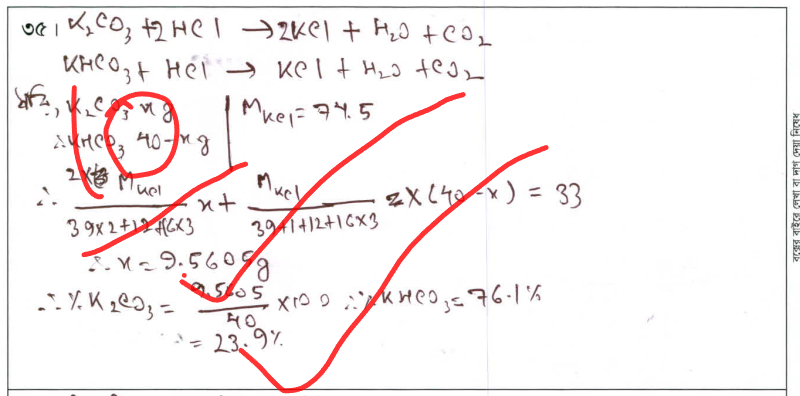 ৩৫। K₂CO₃ + 2HCl → 2KCl + H₂O + CO₂
KHCO₃ + HCl → KCl + H₂O + CO₂
ধরি, K₂CO₃ x g | M_KCl = 74.5
∴ KHCO₃ 40-x g
∴ (2 × M_KCl)/(39×2+12+16×3) x + M_KCl/(39+1+12+16×3) × (40-x) = 33
∴ x = 9.5605g
∴ % K₂CO₃ = 9.5605/40 × 100 ∴ % KHCO₃ = 76.1%
= 23.9%
বক্সের বাইরে লেখা বা দাগ দেয়া নিষেধ